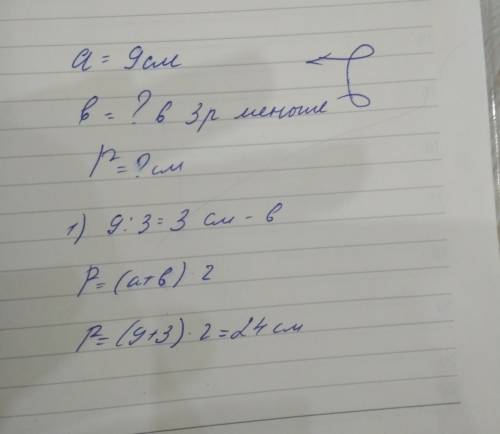 a = 9 см
в = ? в 3 р меньше
P = ? см
1) 9 : 3 = 3 см - в
P = (a+в) 2
P = (9+3) · 2 = 24 см